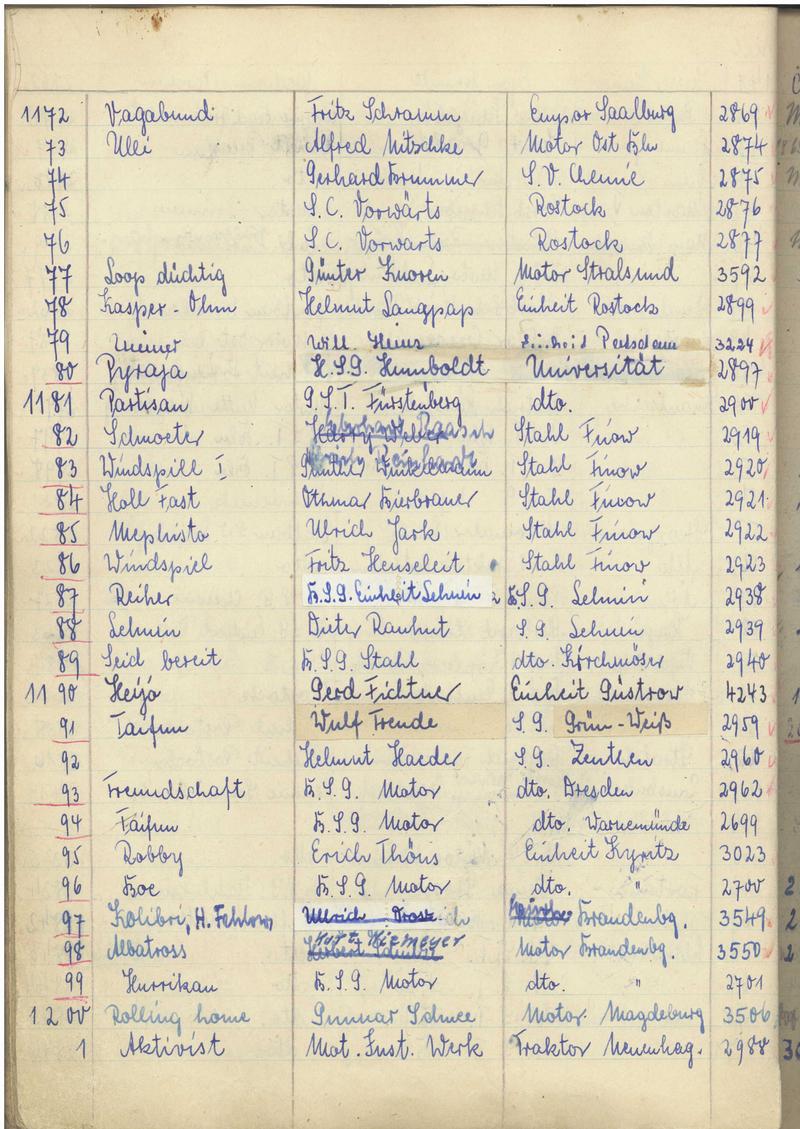 1172 Vagabund Fritz Schramm Empor Saalburg 2869
73 Ulli Alfred Nitschke Motor Ost Bln 2874
74 Gerhard Brummer S.V. Chemie 2875
75 S.C. Vorwärts Rostock 2876
76 S.C. Vorwärts Rostock 2877
77 Loop düchtig Günter Knoren Motor Stralsund 3592
78 Kasper-Ohm Helmut Langpap Einheit Rostock 2899
79 Will. Heinz Einheit Potsdam 3224
80 Pyraja H.S.G. Humboldt Universität 2897
1181 Partisan G.S.T. Fürstenberg dto. 2900
82 Schmoeter Baasch Stahl Finow 2919
83 Windspill I Stahl Finow 2920
84 Holl Fast Othmar Bierbrauer Stahl Finow 2921
85 Mephisto Ulrich Jark Stahl Finow 2922
86 Windspiel Fritz Henseleit Stahl Finow 2923
87 Reiher B.S.G. Einheit Lehnin S.G. Lehnin 2938
88 Lehnin Dieter Rauhut S.G. Lehnin 2939
89 Seid bereit B.S.G. Stahl dto. Kirchmöser 2940
1190 Heijo Gerd Fichtner Einheit Güstrow 4243
91 Taifun Wulf Frende S.G. Grün-Weiß 2959
92 Helmut Haeder S.G. Zeuthen 2960
93 Freundschaft B.S.G. Motor dto. Dresden 2962
94 Taifun B.S.G. Motor dto. Warnemünde 2699
95 Robby Erich Thöns Einheit Kyritz 3023
96 Boe B.S.G. Motor dto. " 2700
97 Kolibri, H. Fehlow Ulrich Brandenbg. 3549
98 Albatross Horst Niemeyer Motor Brandenbg. 3550
99 Hurrikan B.S.G. Motor dto. " 2701
1200 Rolling home Gunnar Schnee Motor Magdeburg 3506
1 Aktivist Mot. Inst. Werk Traktor Neuenhag. 2988